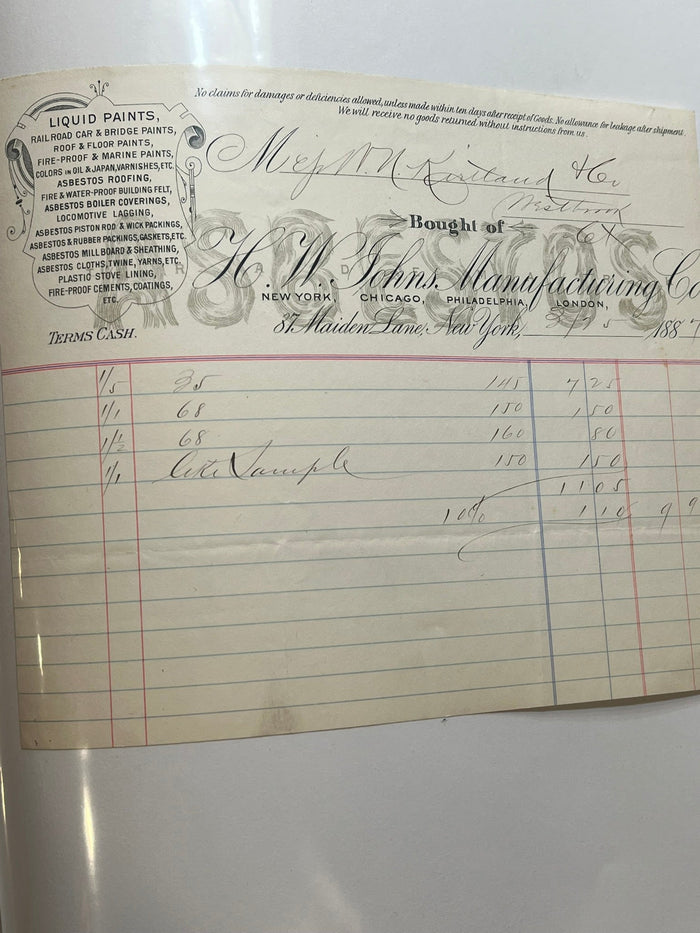 No claims for damages or deficiencies allowed, unless made within ten days after receipt of Goods. No allowance for leakage after shipment.
We will receive no goods returned without instructions from us.
LIQUID PAINTS,
RAILROAD CAR & BRIDGE PAINTS,
ROOF & FLOOR PAINTS,
FIRE-PROOF & MARINE PAINTS,
COLORS IN OIL & JAPAN, VARNISHES, ETC.
ASBESTOS ROOFING,
FIRE & WATER-PROOF BUILDING FELT,
ASBESTOS BOILER COVERINGS,
LOCOMOTIVE LAGGING,
ASBESTOS PISTON ROD & WICK PACKINGS,
ASBESTOS & RUBBER PACKINGS, GASKETS, ETC.
ASBESTOS MILL BOARD & SHEATHING,
ASBESTOS CLOTHS, TWINE, YARNS, ETC.
PLASTIC STOVE LINING,
FIRE-PROOF CEMENTS, COATINGS,
ETC.
TERMS CASH.
W. N. Kirtland & Co
Westbrook
Ct
Bought of
ASBESTOS
H. W. Johns Manufacturing Co
NEW YORK, CHICAGO, PHILADELPHIA, LONDON,
87 Maiden Lane, New York, 1887
1/5 35 145 7 25
1/1 68 150 1 50
1/½ 68 160 80
1/1 Sample 150 1 50
11 05
10% 1 10 9 9